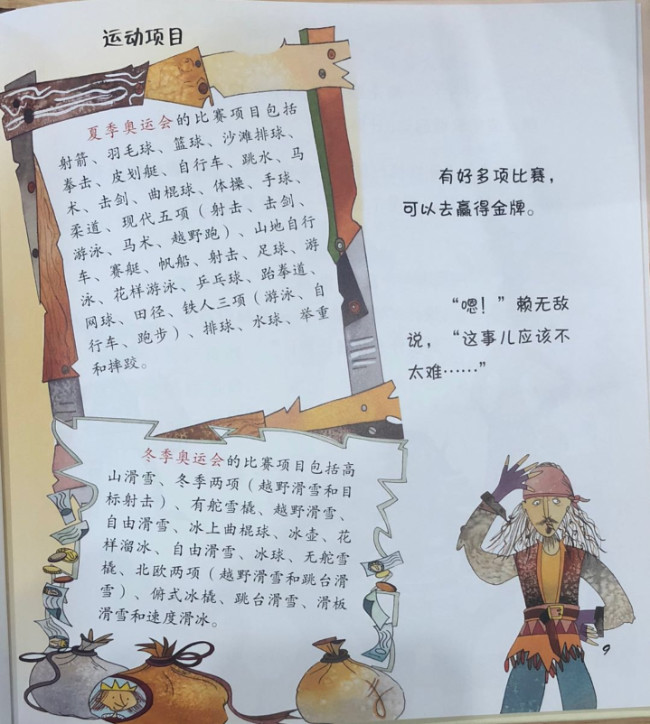 运动项目
夏季奥运会的比赛项目包括
射箭、羽毛球、篮球、沙滩排球、
拳击、皮划艇、自行车、跳水、马
术、击剑、曲棍球、体操、手球、
柔道、现代五项（射击、击剑、
游泳、马术、越野跑）、山地自行
车、赛艇、帆船、射击、足球、游
泳、花样游泳、乒乓球、跆拳道、
网球、田径、铁人三项（游泳、自
行车、跑步）、排球、水球、举重
和摔跤。
冬季奥运会的比赛项目包括高
山滑雪、冬季两项（越野滑雪和目
标射击）、有舵雪橇、越野滑雪、
自由滑雪、冰上曲棍球、冰壶、花
样溜冰、自由滑雪、冰球、无舵雪
橇、北欧两项（越野滑雪和跳台滑
雪）、俯式冰橇、跳台滑雪、滑板
滑雪和速度滑冰。
有好多项比赛，
可以去赢得金牌。
“嗯！”赖无敌
说，“这事儿应该不
太难……”
9